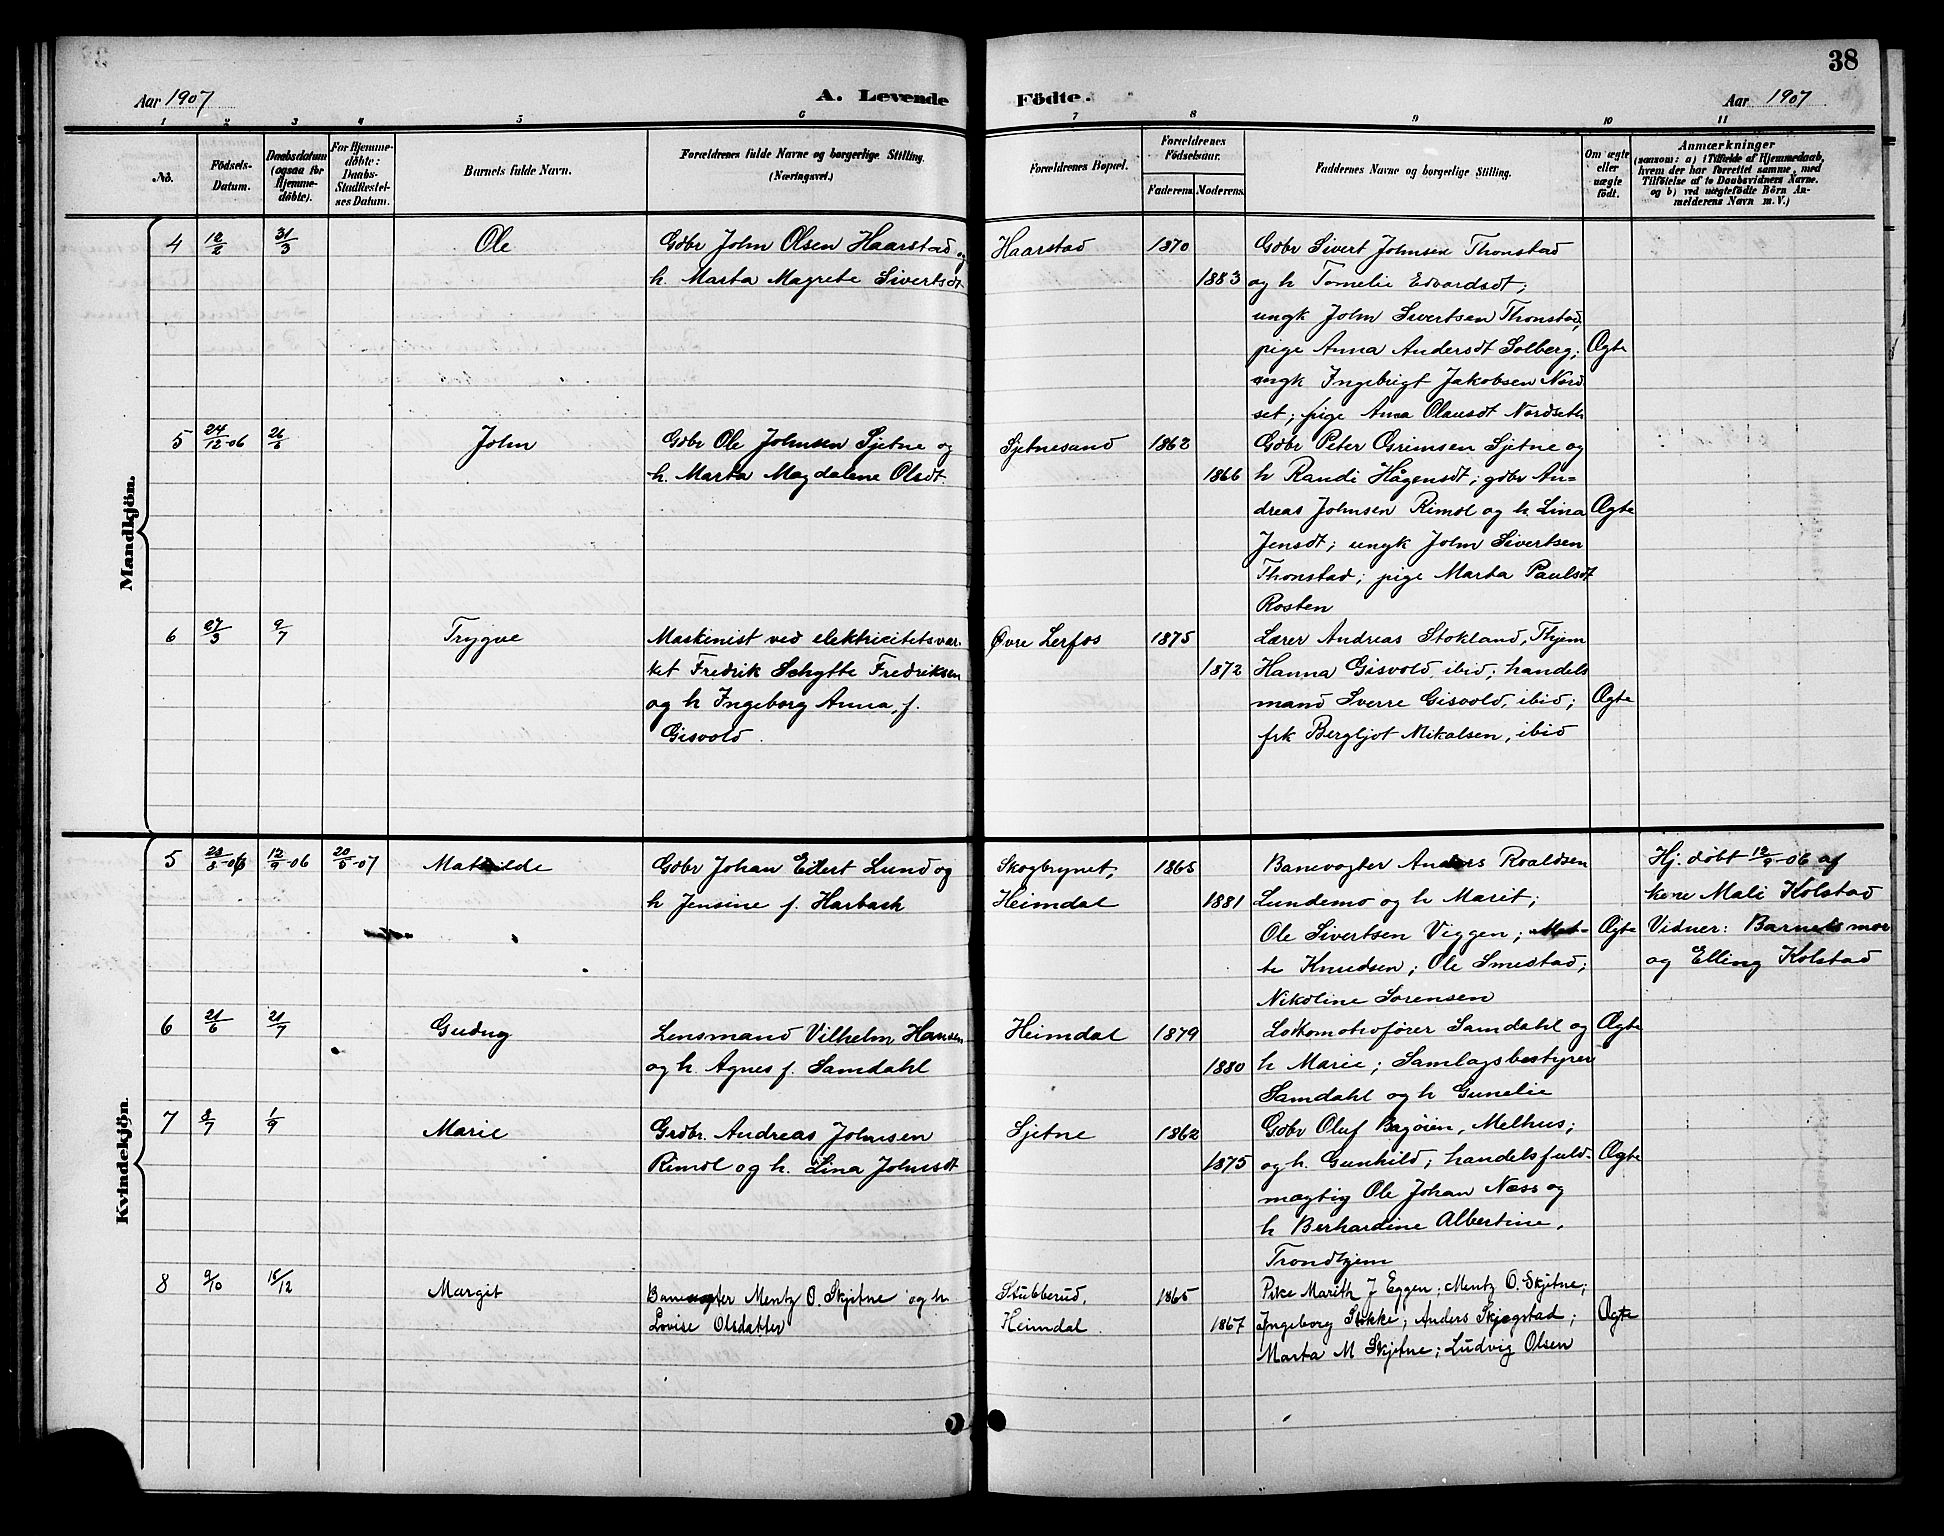 38
Aar 1907
A. Levende
Födte.
Aar 1907
1 2 3 4 5 6 7 8 9 10 11
No.
Födsels-
Datum.
Daabsdatum
(ogsaa for
Hjemme-
döbte).
For Hjemme-
döbte:
Daabs-
Stadfæstel-
ses Datum.
Barnets fulde Navn.
Forældrenes fulde Navne og borgerlige Stilling.
(Næringsvei.)
Forældrenes Bopæl.
Forældrenes
Födselsaar.
Faderens.
Moderens.
Faddernes Navne og borgerlige Stilling.
Om ægte
eller
uægte
födt.
Anmærkninger
(saasom: a) i Tilfælde af Hjemmedaab,
hvem der har forrettet samme, med
Tilföielse af to Daabsvidners Navne,
og b) ved uægtefödte Börn An-
melderens Navn m. V.)
Mandkjön.
4 12/2 31/3 Ole
Gdbr John Olsen Haarstad og
h. Marta Magrete Sivertsdt
Haarstad 1870
1883
Gdbr Sivert Johnsen Thonstad
og h Tomelie Edvardsdt;
ungk John Sivertsen Thonstad;
pige Anna Andersdt Solberg;
ungk Ingebrigt Jakobsen Nord
set; pige Anna Olausdt Nordseth
Ægte
5 24/12-06 26/5 John
Gdbr Ole Johnsen Sjetne og
h. Marta Magdalene Olsdt
Sjetnesand 1862
1866
Gdbr Peter Grimsen Sjetne og
h Randi Hågensdt; gdbr An=
dreas Johnsen Rimol og h. Lina
Jensdt; ungk John Sivertsen
Thonstad; pige Marta Paulsdt
Rosten
Ægte
6 27/3 9/7 Trygve
Maskinist ved elektricitetsvær-
ket Fredrik Schytte Fredriksen
og h Ingeborg Anna, f.
Gisvold.
Øvre Lerfos 1875
1872
Lærer Andreas Stokland, Thjem
Hanna Gisvold, ibid; handels
mand Sverre Gisvold, ibid;
frk Bergljot Mikalsen, ibid
Ægte
Kvindekjön.
5 12/9-06 20/5-07 Mathilde
Gdbr Johan Edert Lund og
h Jensine f. Harbach
Skogbrynet,
Heimdal
1865
1881
Banevogter Anders Roaldsen
Lundemo og h Marit;
Ole Sivertsen Viggen; Met-
te Knudsen; Ole Smestad;
Nikoline Sørensen
Ægte
Hj. døbt 12/9-06 af
kone Mali Kolstad
Vidner: Barnets mor
og Elling Kolstad
6 21/6 21/7 Gudny
Lensmand Vilhelm Hansen
og h. Agnes f. Samdahl
Heimdal 1879
1880
Lokomotivfører Samdahl og
h Marie; Samlagsbestyrer
Samdahl og h Gunelie
Ægte
7 8/7 1/9 Marie
Grdbr. Andreas Johnsen
Rimol og h. Lina Johnsdt
Sjetne 1862
1875
Gdbr Oluf Bagøien, Melhus;
og h. Gunhild; handelsfuld-
mægtig Ole Johan Næss og
h Berhardine Albertine,
Trondhjem
Ægte
8 9/10 15/12 Margit
Banevogter Mentz O. Skjetne og h
Lovise Olsdatter
Stubberud,
Heimdal.
1865
1867
Pike Marith J Eggen; Mentz O. Skjetne;
Ingeborg Stokke; Anders Skjøgstad;
Marta M Skjetne; Ludvig Olsen
Ægte